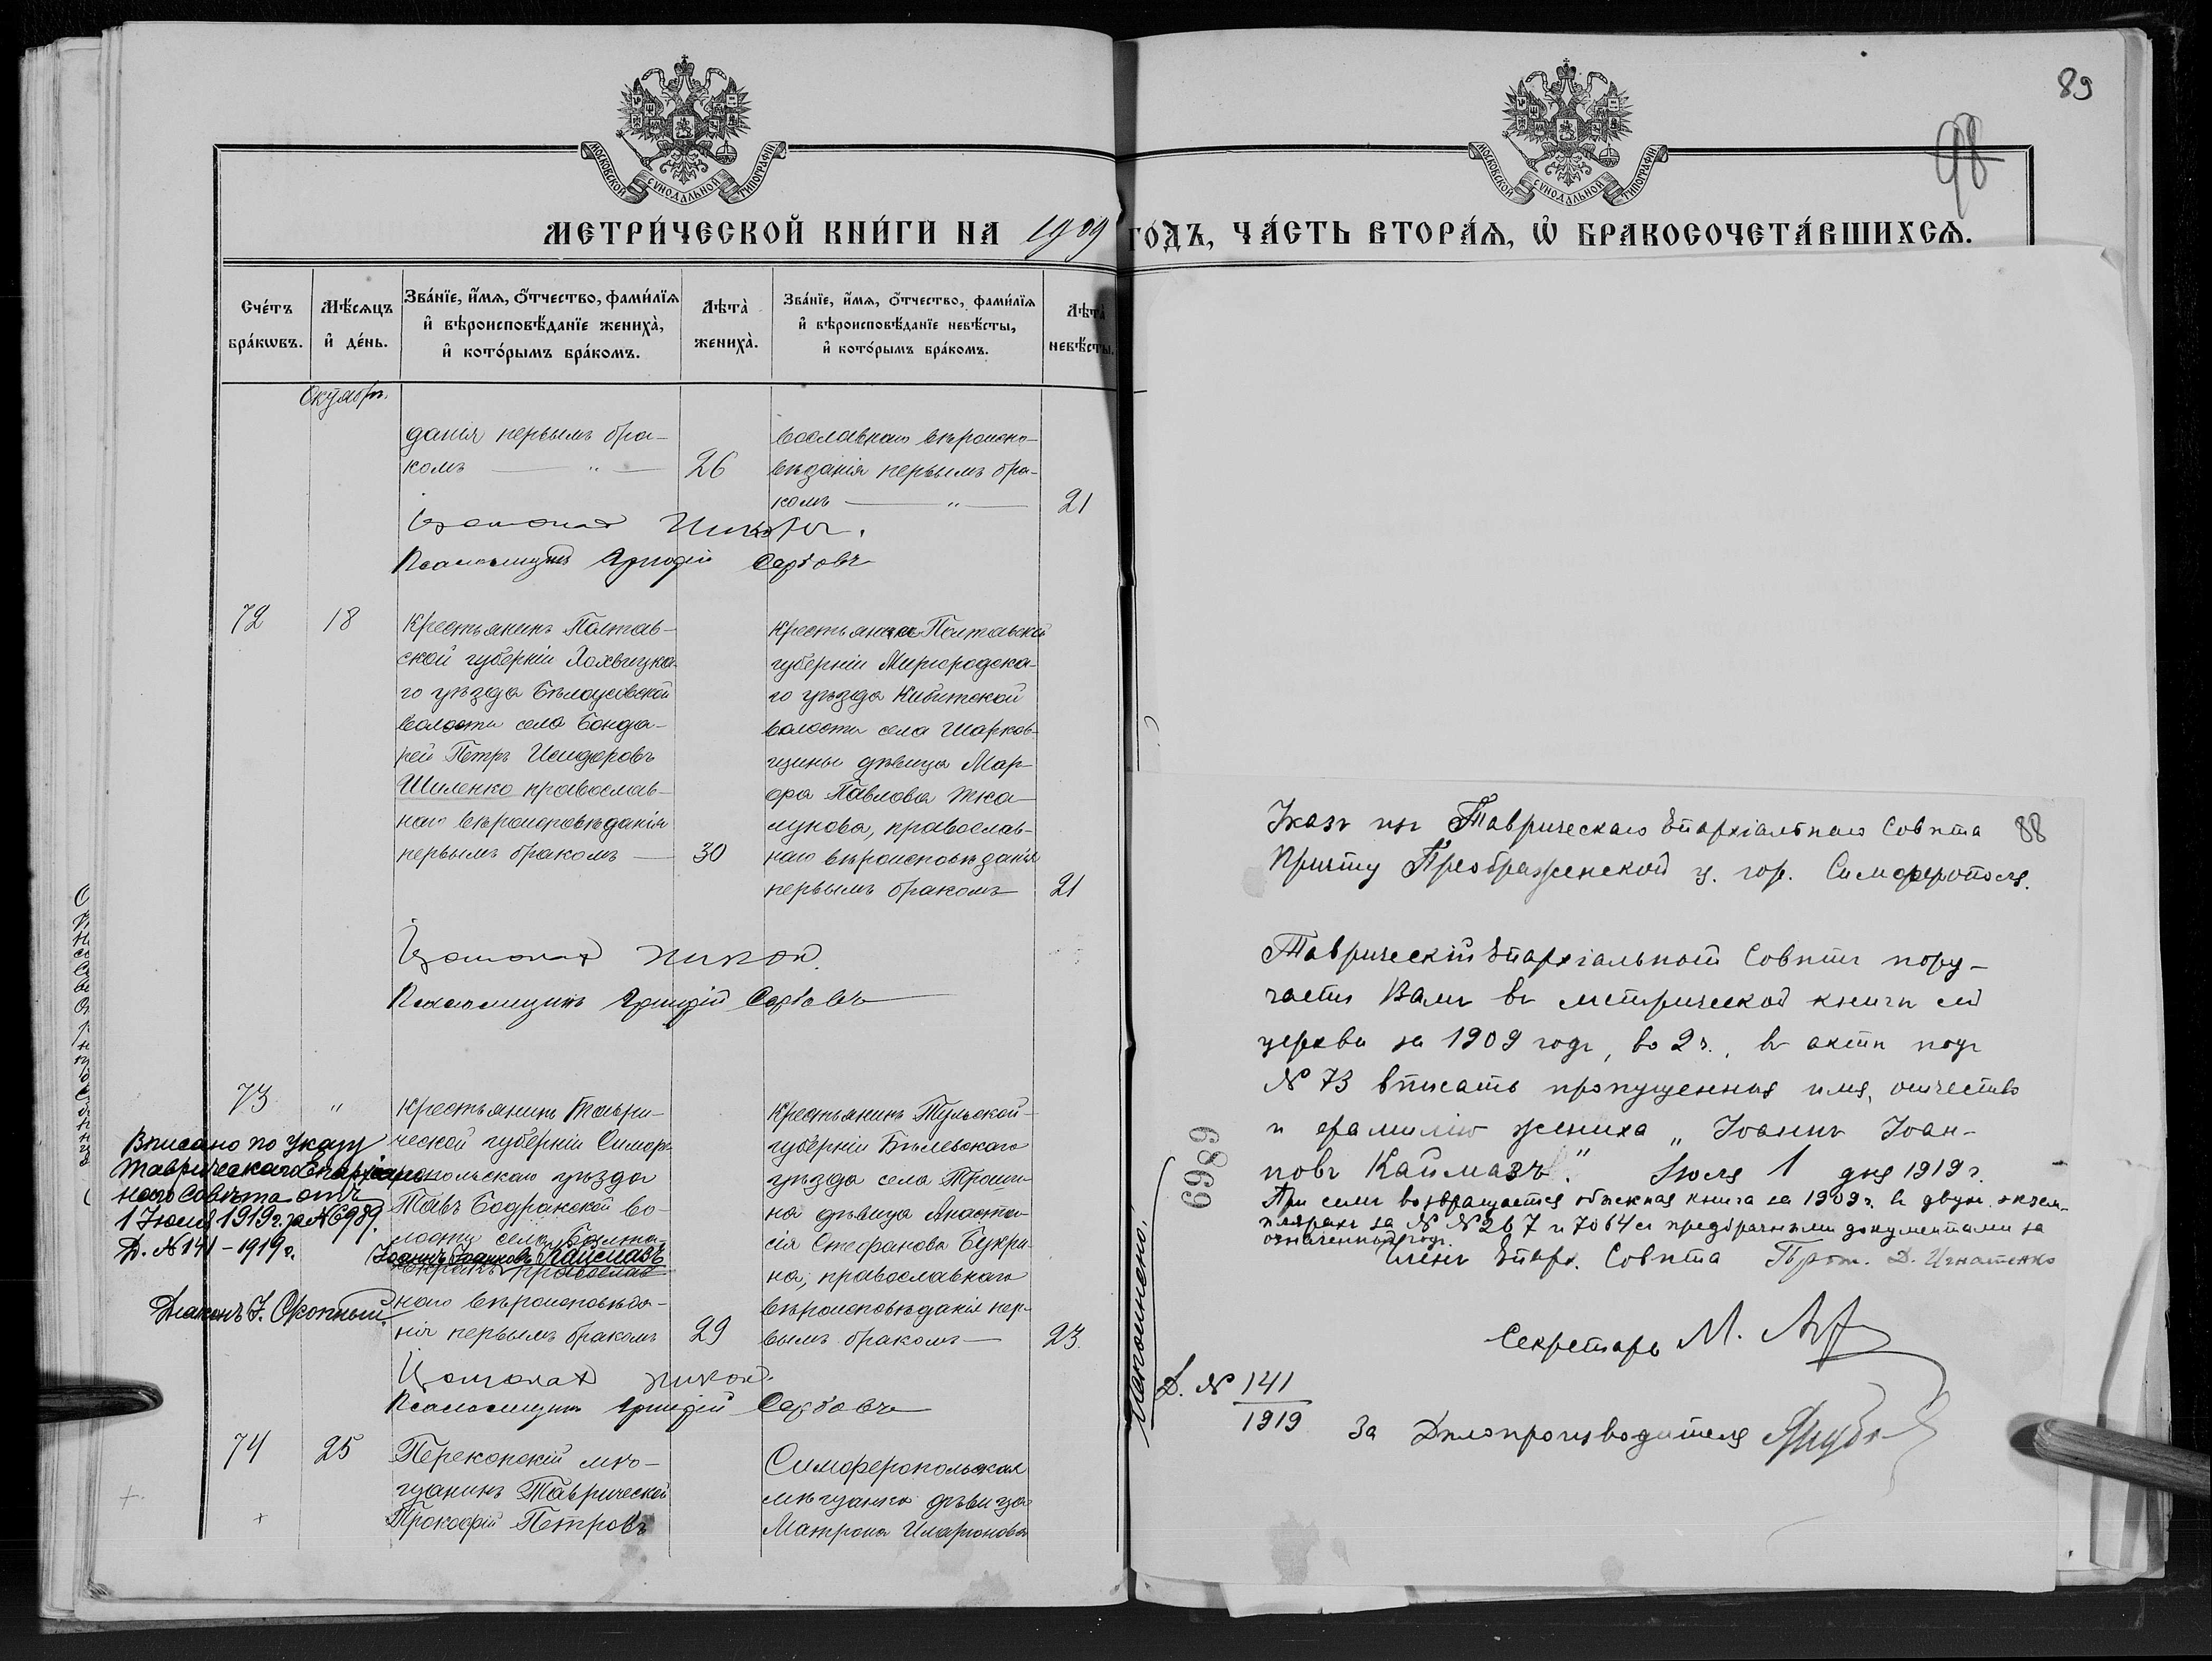 89
98
МОСКОВСКОЙ СѴНОДАЛЬНОЙ ТИПОГРАФІИ
МОСКОВСКОЙ СѴНОДАЛЬНОЙ ТИПОГРАФІИ
МЕТРИ́ЧЕСКОЙ КНИ́ГИ НА 1909 ГО́ДЪ, ЧА́СТЬ ВТОРА́Ѧ, Ѡ БРАКОСОЧЕТА́ВШИХСѦ.
Сче́тъ бра́кѡвъ.
Мѣ́сѧцъ и҆ де́нь.
Зва́нїе, и҆́мѧ, ѻ҆́тчество, фами́лїѧ и҆ вѣроисповѣ́данїе жениха̀, и҆ кото́рымъ бра́комъ.
Лѣта̀ жениха̀.
Зва́нїе, и҆́мѧ, ѻ҆́тчество, фами́лїѧ и҆ вѣроисповѣ́данїе невѣ́сты, и҆ кото́рымъ бра́комъ.
Лѣта̀ невѣ́сты.
Октябрь.
данія первымъ бра-
комъ — " — 26
вославнаго вѣроиспо-
вѣданія первымъ бра-
комъ — " — 21
Псаломщикъ Григорій Сербовъ
72 18
Крестьянинъ Полтав-
ской губерніи Лохвицка-
го уѣзда Бѣлоусовской
волости села Бонда-
рей Петръ Исидоровъ
Шиленко православ-
наго вѣроисповѣданія
первымъ бракомъ — 30
Крестьянка Полтавской
губерніи Миргородска-
го уѣзда Кибитской
волости села Шарков-
щины дѣвица Мар-
фа Павлова Тка-
лунова, православ-
наго вѣроисповѣданія
первымъ бракомъ 21
Псаломщикъ Григорій Сербовъ
73 "
Крестьянинъ Таври-
ческой губерніи Симфе-
ропольскаго уѣзда
Тавъ Бодракской во-
лости села
Іоаннъ Іоанновъ Каймазъ
православ-
наго вѣроисповѣда-
нія первымъ бракомъ 29
Крестьянинъ Тульской
губерніи Бѣлевскаго
уѣзда села Троши-
на дѣвица Анаста-
сія Стефанова Букри-
на, православнаго
вѣроисповѣданія пер-
вымъ бракомъ — 23.
Вписано по указу
Таврическаго Епархіаль-
наго Совѣта отъ
1 Іюля 1919 г. за № 6989.
Д. № 141 – 1919 г.
Діаконъ І. Окопный.
Псаломщикъ Григорій Сербовъ
74 25
Перекопскій мѣ-
щанинъ Таврической
Прокофій Петровъ
Симферопольская
мѣщанка дѣвица
Матрона Иларіонова
Указъ изъ Таврическаго Епархіальнаго Совѣта 88
Причту Преображенской ц. гор. Симферополя.
Таврическій Епархіальный Совѣтъ пору-
чаетъ Вамъ въ метрической книгѣ сей
церкви за 1909 годъ, во 2 ч., въ актѣ подъ
№ 73 вписать пропущенныя имя, отчество
и фамилію жениха „Іоаннъ Іоан-
новъ Каймазъ". Іюля 1 дня 1919 г.
При семъ возвращается обыскная книга за 1909 г. въ двухъ экзем-
плярахъ за №№ 267 и 7064 и предбрачными документами за
означенный годъ.
Членъ Епарх. Совѣта Прот. Д. Игнатенко
Секретарь М.
За Дѣлопроизводителя
6989
Исполнено.
Д. № 141
1919